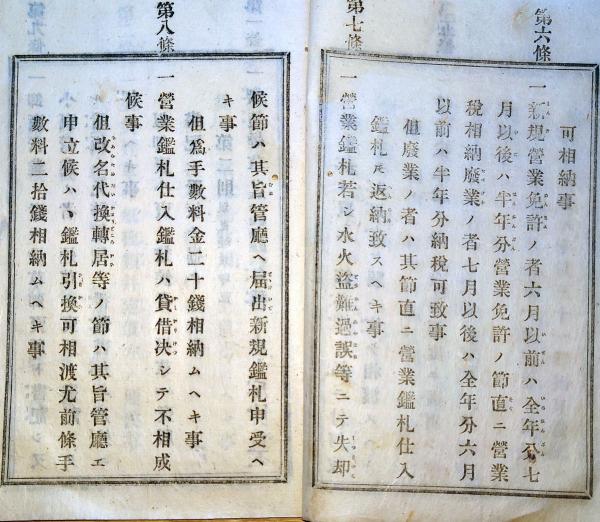 可相納事
第六條
一新規營業免許ノ者六月以前ハ全年分七
月以後ハ半年分營業免許ノ節直ニ營業
稅相納廢業ノ者七月以後ハ全年分六月
以前ハ半年分納稅可致事
但廢業ノ者ハ其節直ニ營業鑑札仕入
鑑札𪜈返納致スヘキ事
第七條
一營業鑑札若シ水火盜難過誤等ニテ失却
候節ハ其旨管廳ヘ屆出新規鑑札申受ヘ
キ事
但爲手數料金二十錢相納ムヘキ事
第八條
一營業鑑札仕入鑑札ハ貸借決シテ不相成
候事
但改名代換轉居等ノ節ハ其旨管廳エ
申立候ハヽ鑑札引換可相渡尤前條手
數料二拾錢相納ムヘキ事